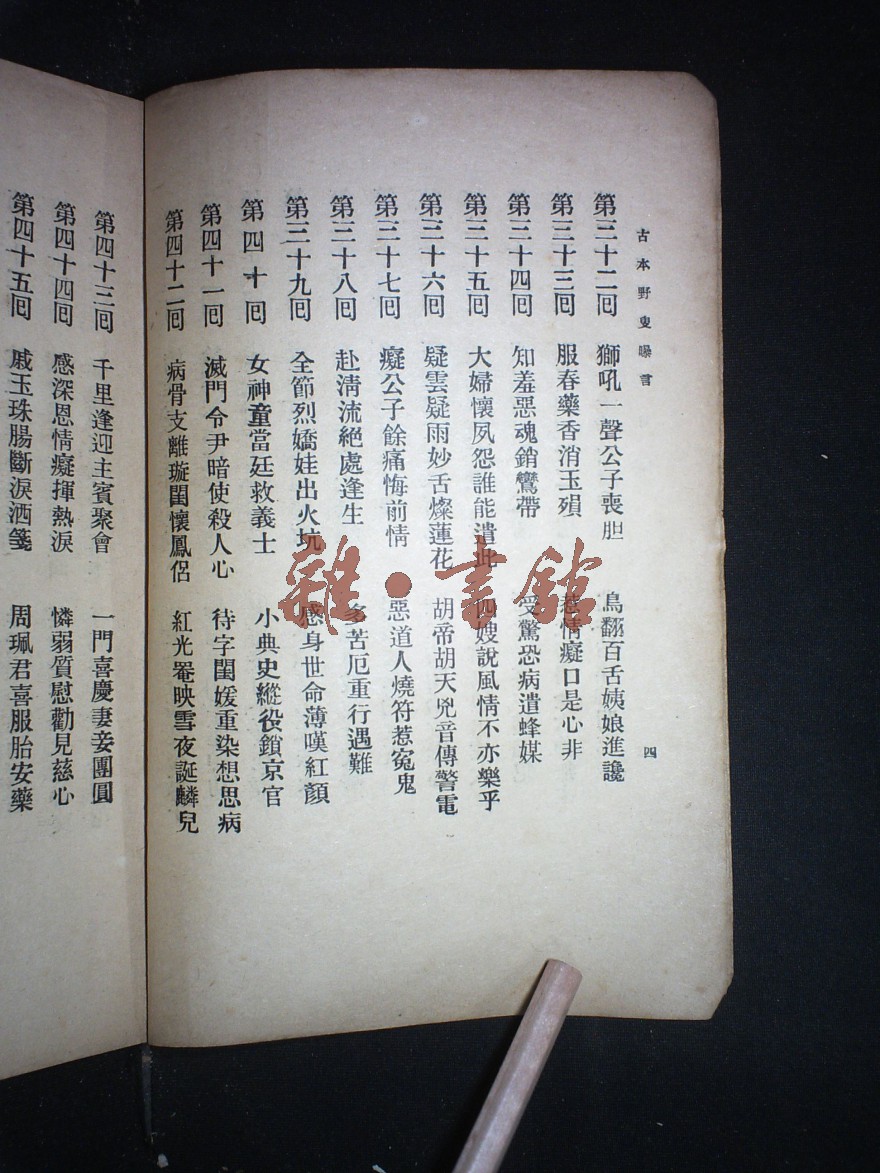 古本野叟曝言
四
第三十二囘 獅吼一聲公子喪胆 鳥翻百舌姨娘進讒
第三十三囘 服春藥香消玉殞 情癡口是心非
第三十四囘 知羞惡魂銷鸞帶 受驚恐病遣蜂媒
第三十五囘 大婦懷夙怨誰能遣此 四嫂說風情不亦樂乎
第三十六囘 疑雲疑雨妙舌燦蓮花 胡帝胡天兇音傳警電
第三十七囘 癡公子餘痛悔前情 惡道人燒符惹寃鬼
第三十八囘 赴淸流絕處逢生 多苦厄重行遇難
第三十九囘 全節烈嬌娃出火坑 感身世命薄嘆紅顏
第四十囘 女神童當廷救義士 小典史縱役鎖京官
第四十一囘 滅門令尹暗使殺人心 待字閨媛重染想思病
第四十二囘 病骨支離璇閨懷鳳侶 紅光罨映雪夜誕麟兒
第四十三囘 千里逢迎主賓聚會 一門喜慶妻妾團圓
第四十四囘 感深恩情癡揮熱淚 憐弱質慰勸見慈心
第四十五囘 戚玉珠腸斷淚洒箋 周珮君喜服胎安藥
雜·書館